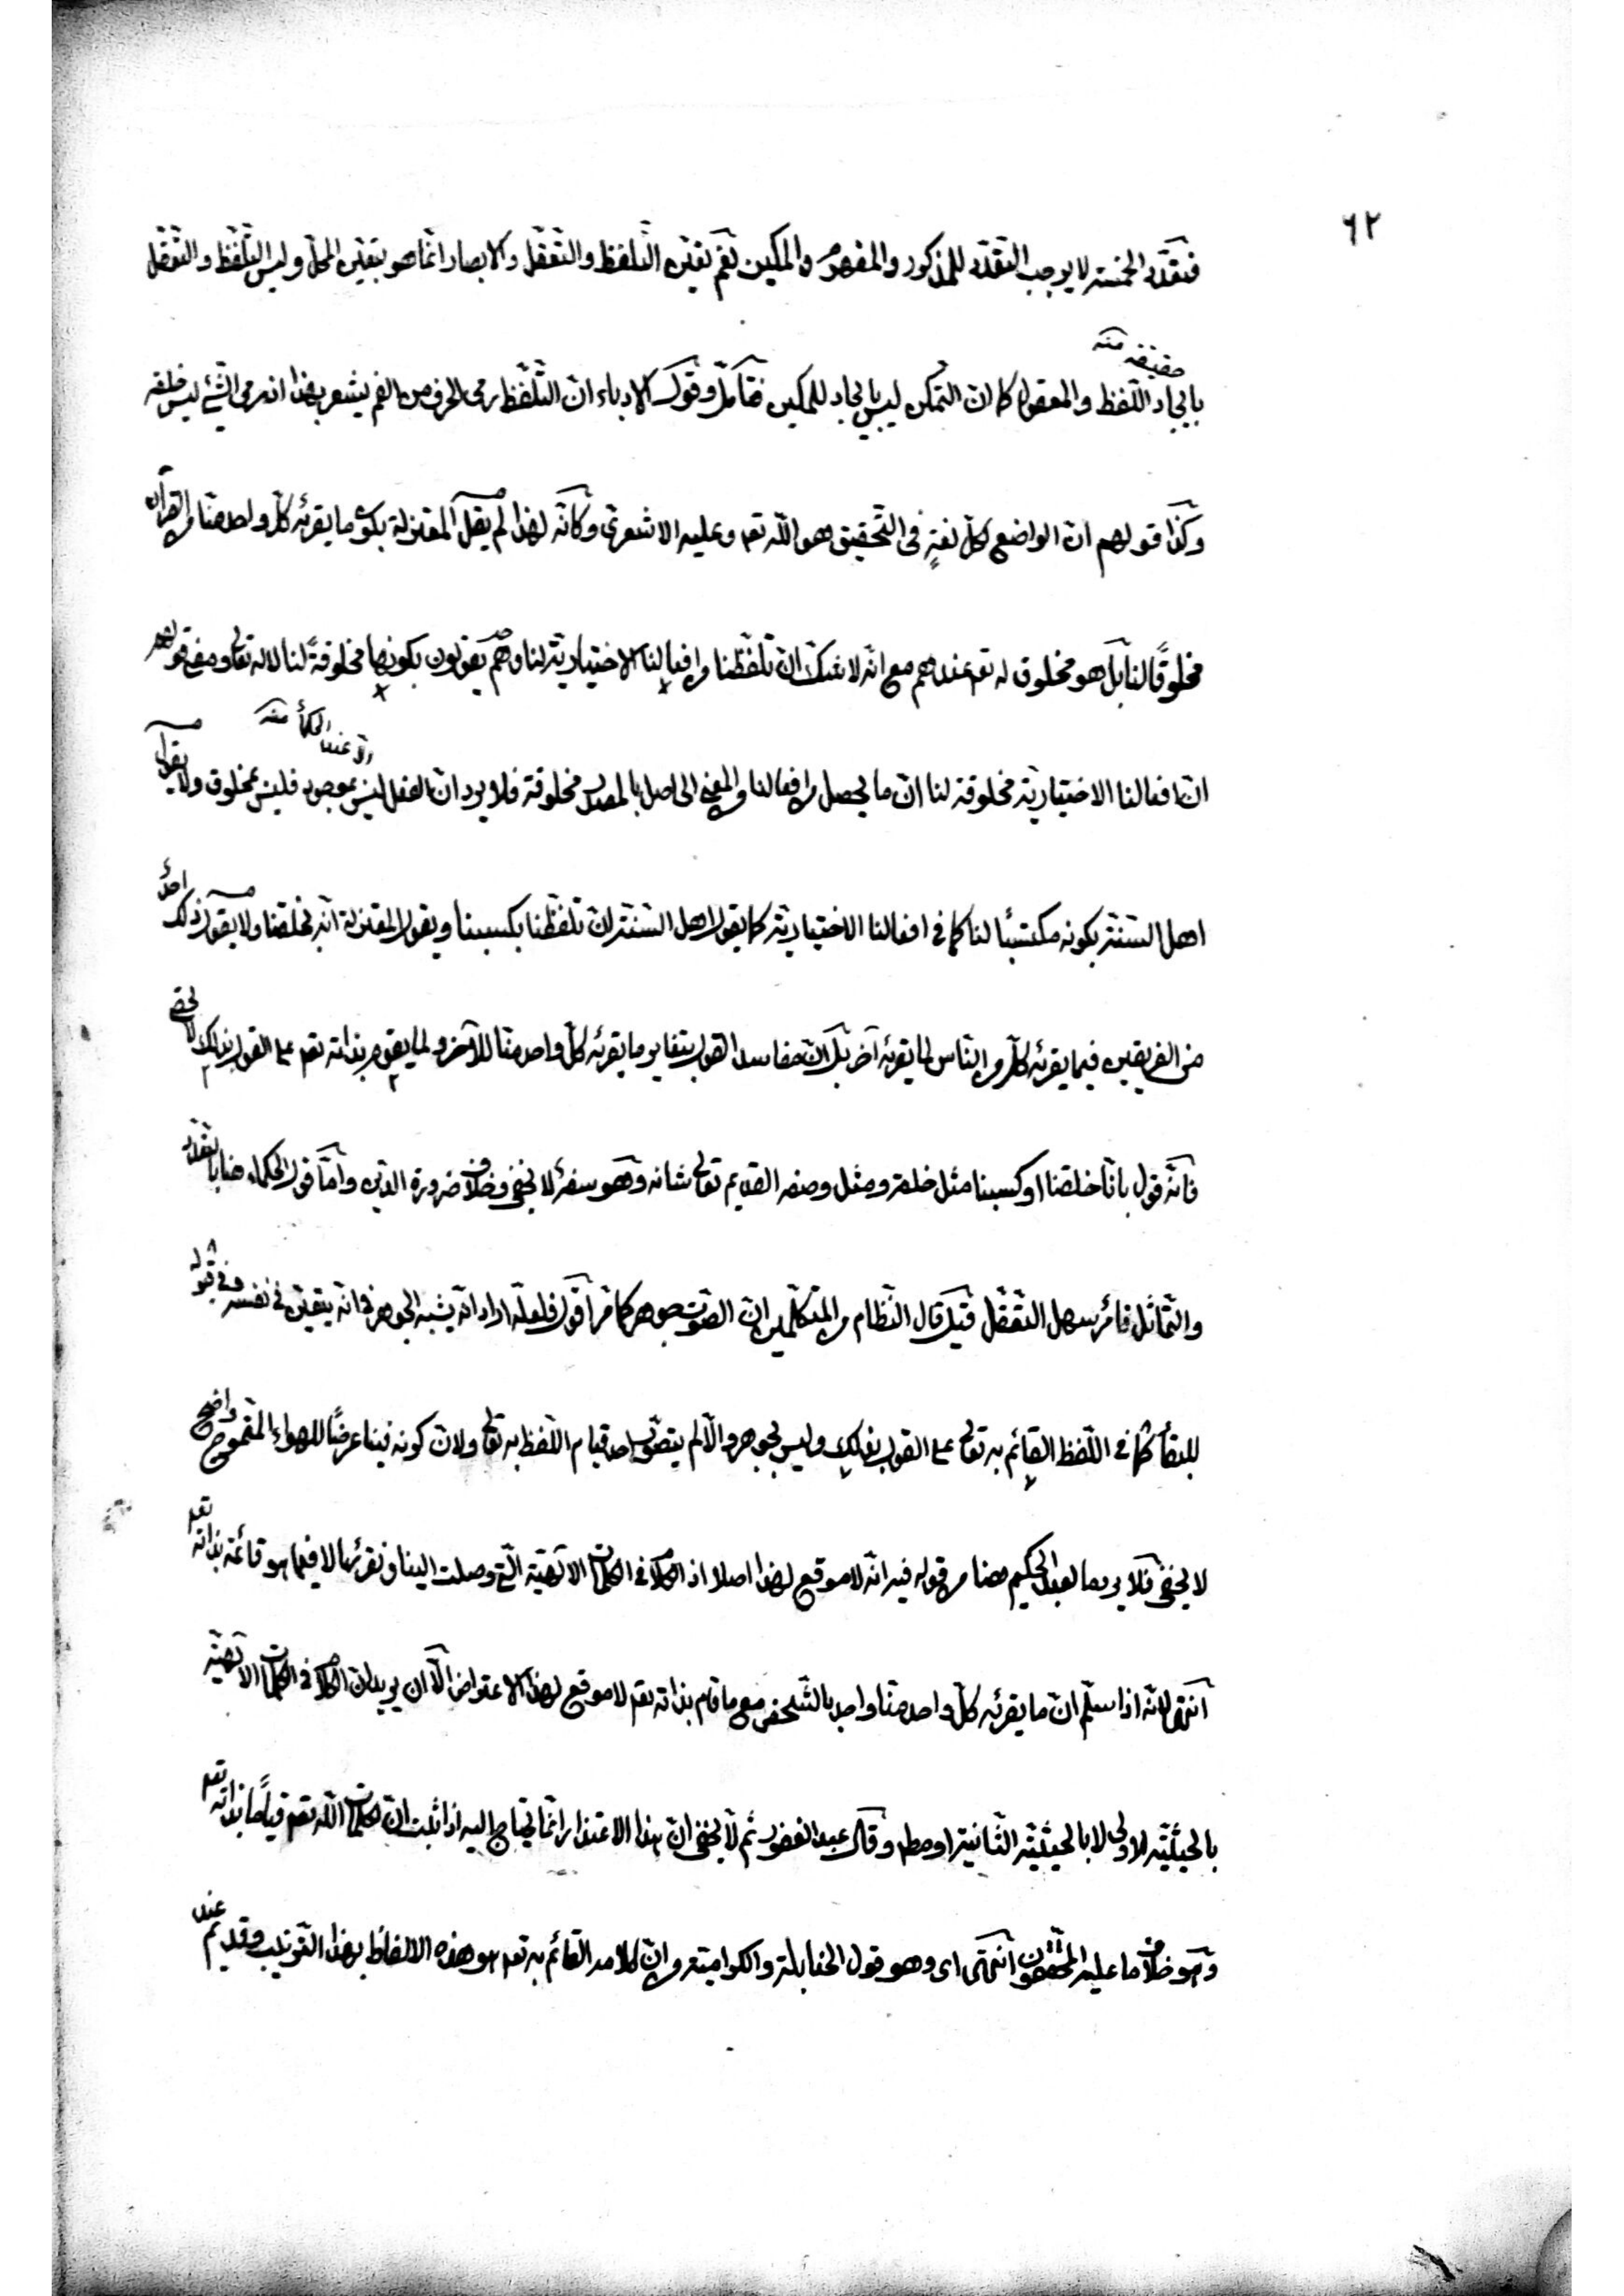 ٦٢
فتعدّد الخمسة لا يوجب التعدّد للمذكور والمفهوم والمكين نعم تعيّن التلفظ والتعقّل والابصار انّما هو بتعيّن المحلّ وليس التلفّظ والتعقّل
حقيقة منه
بايجاد اللّفظ والمعقول كما ان التمكّن ليس بايجاد للمكين فتأمّل وقول الادباء انّ التلفّظ رمى الحرف من الفم يشعر بهذا اذ رمى الشّيء ليس خلقه
وكذا قولهم انّ الواضع لكلّ لغةٍ فى التّحقيق هو اللّه تعه وعليه الاشعرى وكانّه لهذا لم يقل المعتزلة بكون ما يقرئه كلّ واحد منّا من القرآن
مخلوقًا لنا بل هو مخلوق له تعه عندهم مع انّه لا شكّ انّ تلفّظنا من افعالنا الاختياريّة لنا وهم يقولون بكونها مخلوقةً لنا لا له تعالى ومعنى قولهم
والّا عند الحكمأ منه
انّ افعالنا الاختياريّة مخلوقة لنا انّ ما يحصل من افعالنا والمعنى الحاصل بالمصدر مخلوقة فلا يرد انّ الفعل ليس بموجود فليس بمخلوق ولا يقول
اهل السّنّة بكونه مكتسبًا لنا كما فى افعالنا الاختياريّة كما يقول اهل السّنّة انّ تلفّظنا بكسبنا ويقول المعتزلة انّه بخلقنا ولا يقول ذلك احدٌ
من الفريقين فيما يقرئه كلّ من النّاس لما يقرئه آخر بل انّ مفاسد القول بتغاير ما يقرئه كلّ واحد منّا للآخر ولما يقوم بذاته تعه على القول بذلك لا تحصى
فانّه قول بانّا خلقنا او كسبنا مثل خلقه ومثل وصفه القديم تعالى شانه وهو سفهٌ لا يخفى وخلاف ضرورة الدّين وامّا قول الحكماء هنا بالتعدّد
والتّماثل فامر سهل التعقّل قيل قال النّظام من المتكلّمين انّ الصّوت جوهر كما مرّ اقول فلعلّه اراد انّه يشبه الجوهر فى انّه يتعيّن فى نفسه وفى قبوله
للبقأ كما فى اللّفظ القائم به تعالى على القول بذلك وليس بجوهر والّا لم يتصوّر احد قيام اللّفظ به تعالى ولانّ كونه فينا عرضًا للهواء المتموّج واضح
لا يخفى فلا يرد ما لعبد الحكيم هنا من قوله فيه انّه لا موقع لهذا اصلا اذ الكلام فى الكلمات الالٓهيّة الّتى وصلت الينا ونقرئها لا فيما هو قائمة بذاته تعه
انتهى لانّه اذا سلّم انّ ما يقرئه كلّ واحد منّا واحد بالشّخص مع ما قام بذاته تعه لا موقع لهذا الاعتراض الّا ان يريد انّ الكلام فى الكلمات الالٓهيّة
بالحيثيّة الاولى لا بالحيثيّة الثّانية او مطه وقال عبد الغفور ثم لا يخفى انّ هذا الاعتذار انّما يحتاج اليه اذا ثبت انّ لكلمات اللّه تعه قيامًا بذاته تعه
وهو خلاف ما عليه المحقّقون انتهى اى وهو قول الحنابلة والكراميّة من انّ كلامه القائم به تعه هو هذه الالفاظ بهذا التّرتيب وقديم عند